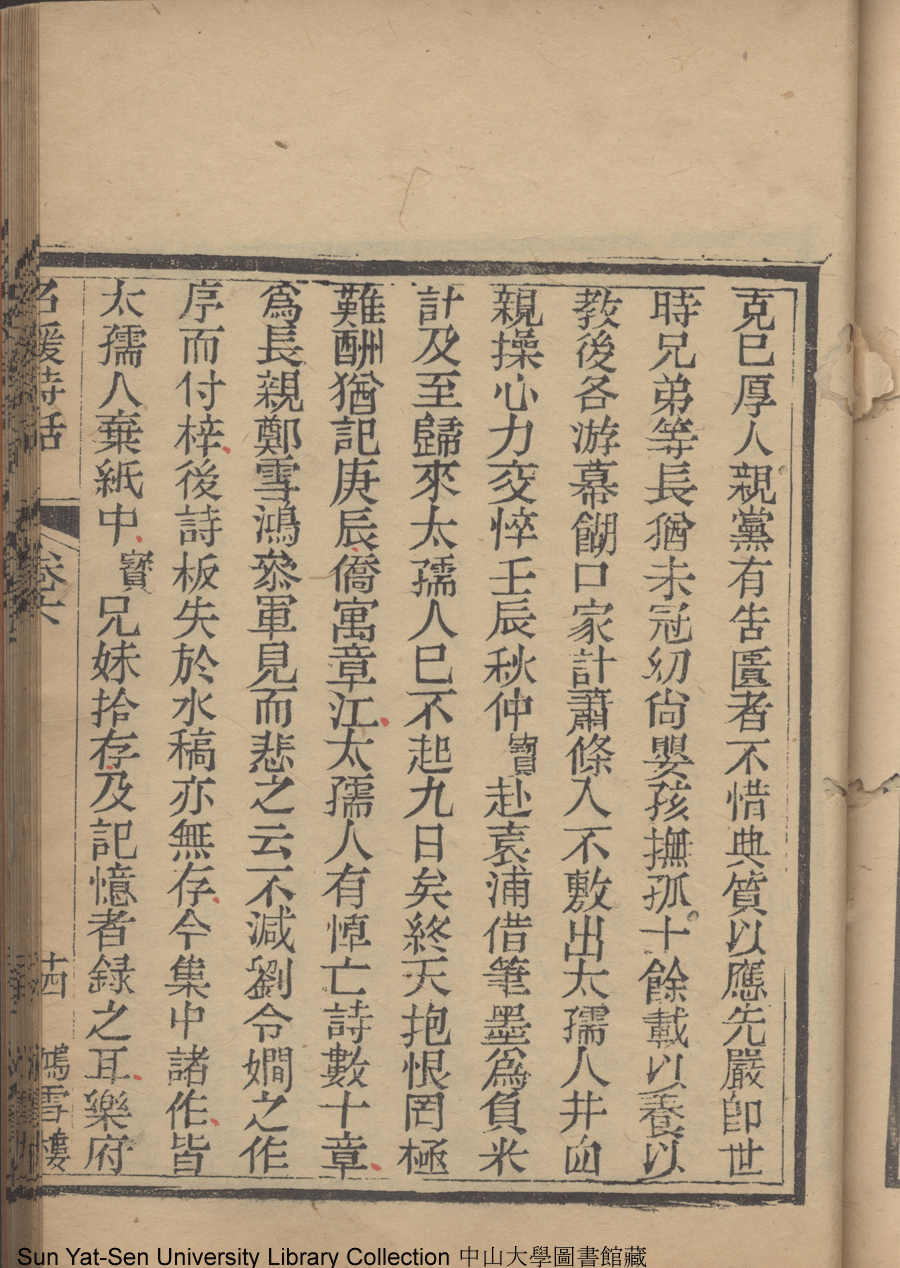 克已厚人親黨有告匱者不惜典質以應先嚴卽世
時兄弟等長猶未冠幼尙嬰孩撫孤十餘載以養以
教後各游幕餬口家計蕭條入不敷出太孺人井臼
親操心力交悴壬辰秋仲寶赴袁浦借筆墨爲負米
計及至歸來太孺人已不起九日矣終天抱恨罔極
難酬猶記庚辰僑寓章江太孺人有悼亡詩數十章
爲長親鄭雪鴻叅軍見而悲之云不減劉令嫺之作
序而付梓後詩板失於水稿亦無存今集中諸作皆
太孺人棄紙中寶兄妹拾存及記憶者録之耳樂府
名媛詩話 卷六 十四 鴻雪樓
Sun Yat-Sen University Library Collection 中山大學圖書館藏